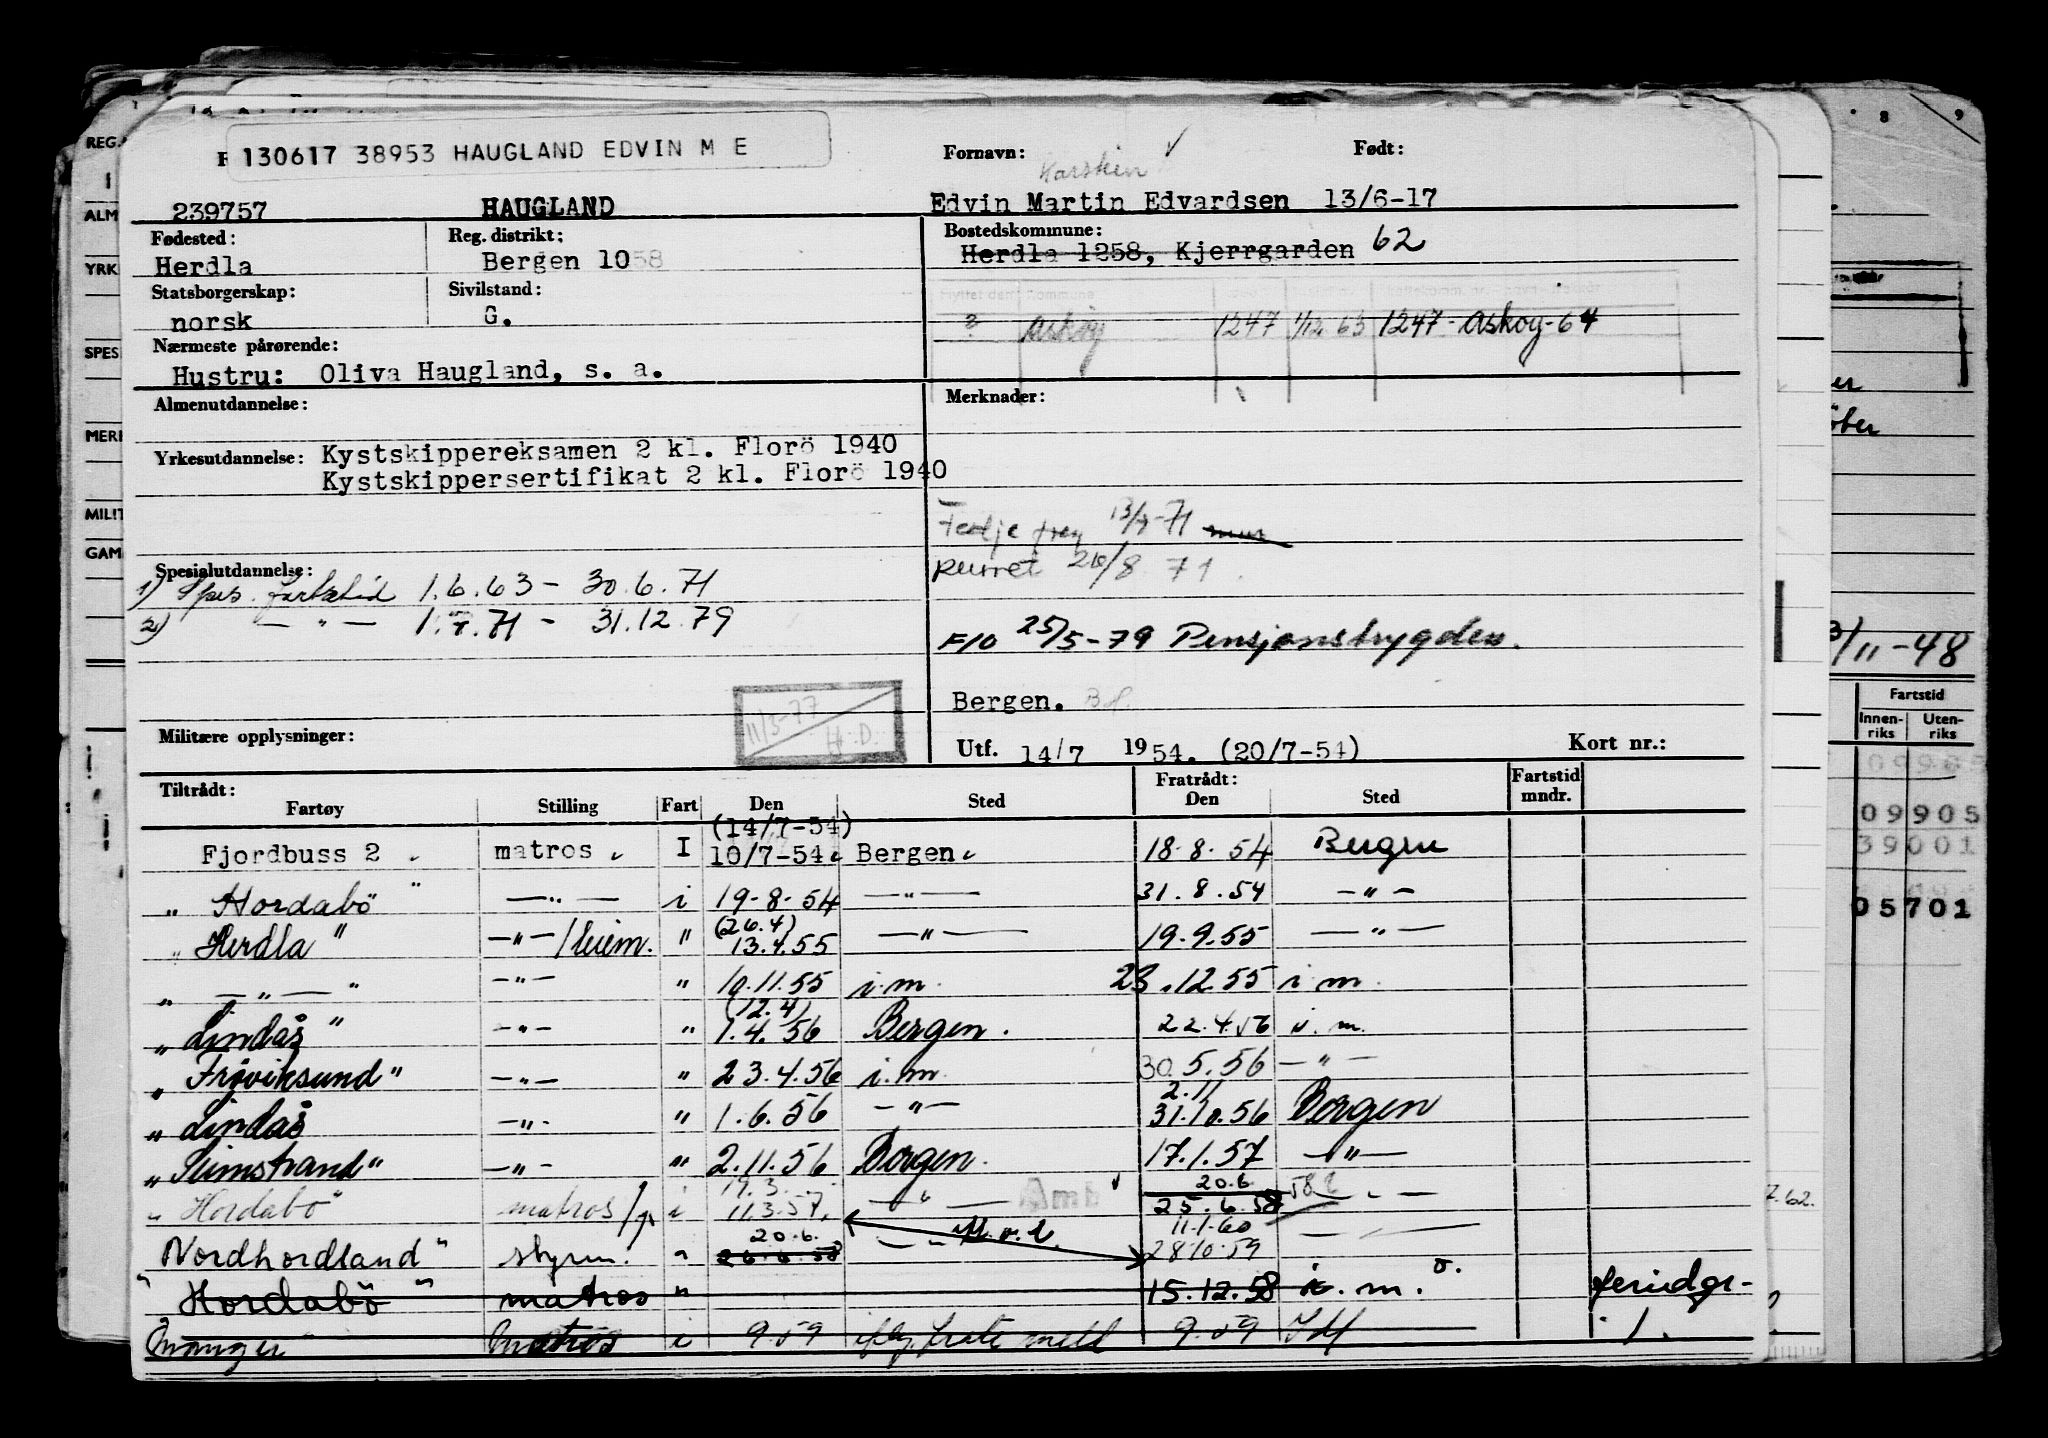 130617 38953 HAUGLAND EDVIN M E
Fornavn: Født:
Karstein
239757 HAUGLAND Edvin Martin Edvardsen 13/6-17
Fødested: Reg. distrikt: Bostedskommune:
Herdla Bergen 1058 Herdla 1258, Kjerrgarden 62
Statsborgerskap: Sivilstand:
norsk G. ? Askøy 1247 1/12 63 1247 - Askøy - 64
Nærmeste pårørende:
Hustru: Oliva Haugland, s. a.
Almenutdannelse: Merknader:
Yrkesutdannelse: Kystskippereksamen 2 kl. Florö 1940
Kystskippersertifikat 2 kl. Florö 1940
13/7-71
purret 26/8 71.
Spesialutdannelse:
1) Spes. fartstid 1.6.63 - 30.6.71
2) — " — 1.7.71 - 31.12.79
F/O 25/5-79 Pensjonstrygden.
11/3-77
H.D.
Bergen.
Militære opplysninger: Utf. 14/7 1954. (20/7-54) Kort nr.:
Tiltrådt: Fratrådt: Fartstid
Fartøy Stilling Fart Den Sted Den Sted mndr.
(14/7-54)
Fjordbuss 2 matros I 10/7-54 Bergen 18.8.54 Bergen
" Hordabö " — " — i 19-8-54 — " — 31.8.54 — " —
(26.4)
" Herdla " — " — / " 13.4.55 — " — 19.9.55 — " —
" — " — " — " — " 10.11.55 i.m. 23.12.55 i m.
(12.4)
" Lindås " — " — " 1.4.56 Bergen. 22.4.56 i.m.
" Frøviksund " — " — " 23.4.56 i.m. 30.5.56 — " —
2.11
" Lindås — " — " 1.6.56 — " — 31.10.56 Bergen
" Seimstrand " — " — " 2.11.56 Bergen. 17.1.57 — " —
20.6.
" Hordabö " matros i 11.3.57. — " — Amb 25.6.58 — " —
20.6. 11.1.60
Nordhordland " styrm. " 26.6.58 — " — 28.10.59
" Hordabö " matros " 15.12.58 i.m.
Manger matros i 9.59 9.59
REG.
ALM
YRK
SPES
MERK
MILIT
GAM
8 9
3/11-48
Fartstid
Innen-
riks
Uten-
riks
09905
39001
05701
7.62.